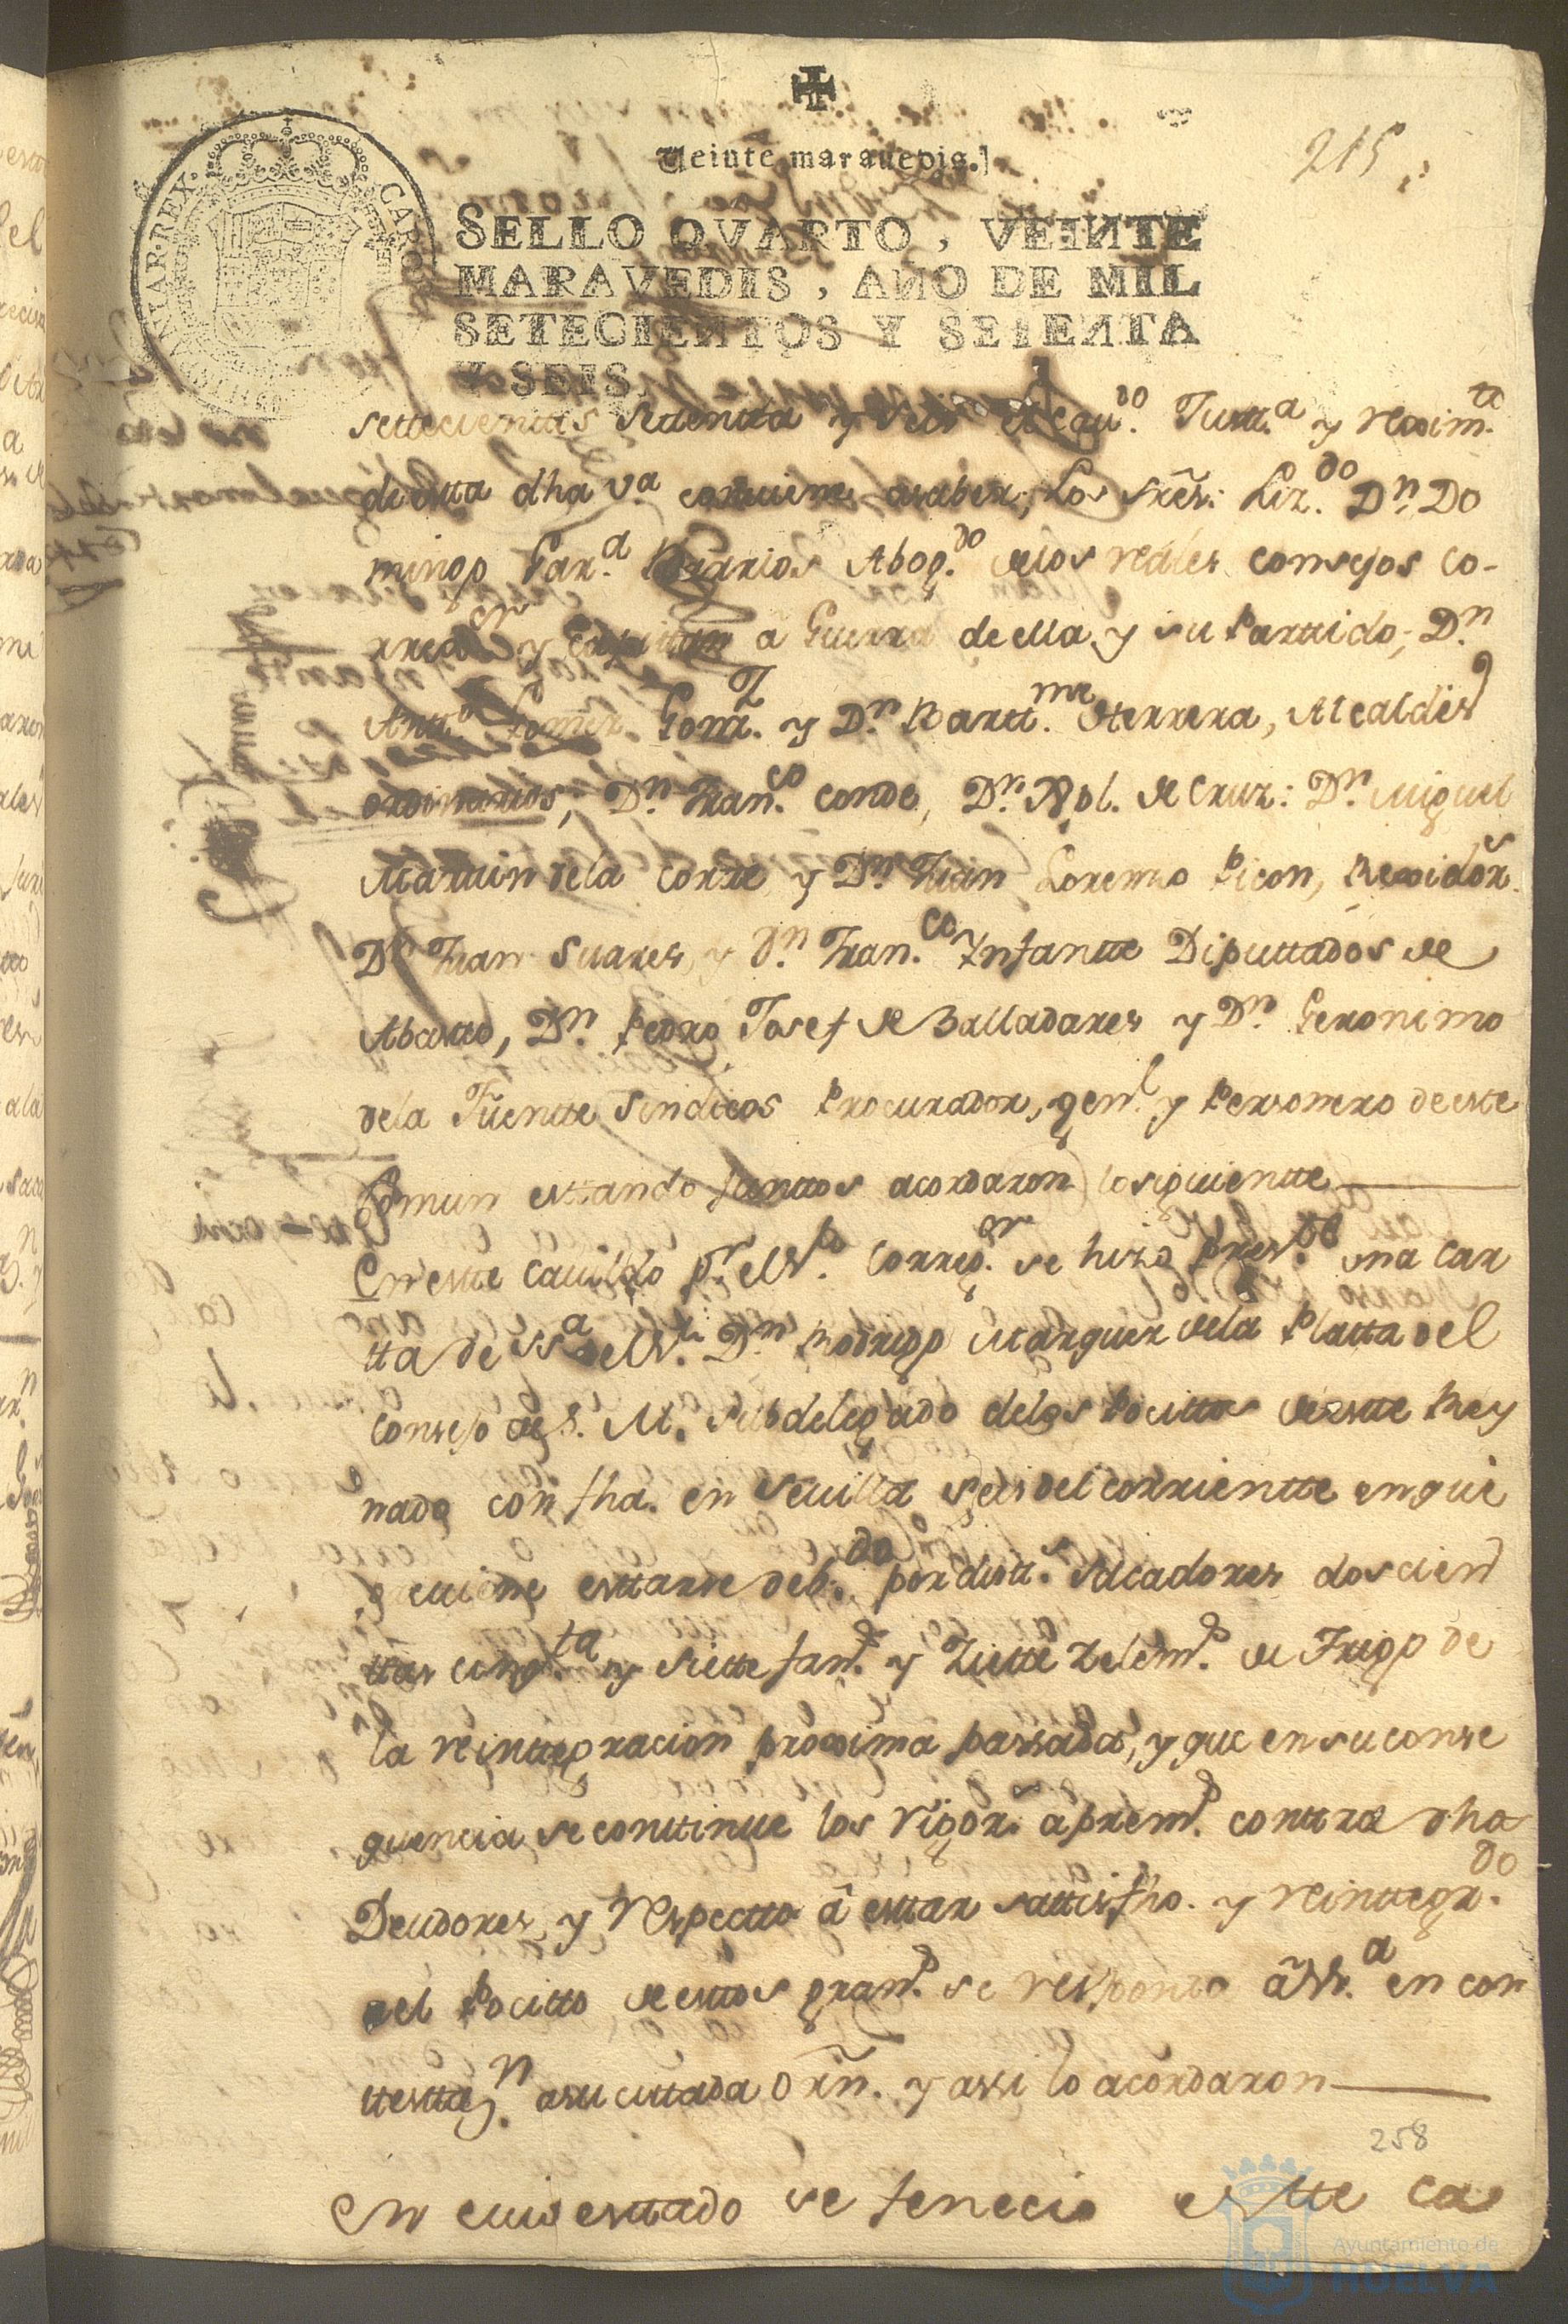 215
Veinte marauedis.
SELLO QVARTO, VEINTE
MARAVEDIS, AÑO DE MIL
SETECIENTOS Y SETENTA
Y SEIS.
CAROL
REX
settecienttos settentta y seis el Cau.do Justt.a y reximto
de estta dha v.a combiene asaber; Los Sres. Liz.do Dn Do
mingo Gar.a Barrios Abog.do de los reales consejos Co-
rreg.or y Capitan a Guerra de ella y su Parttido; Dn
Antt.o Gomez Gonz. y Dn Bartt.me Herrera, Alcaldes
ordinarios; Dn Fran.co conde, Dn Xpl. de Cruz: Dn Miguel
Martin dela Corte y Dn Juan Lorenzo Picon, Rexidor.
Dn Juan Suares, y Dn Fran.co Infantte Diputtados de
Abastto, Dn Pedro Josef de Balladares y Dn Geronimo
dela Fuentte Sindicos Procurador, gen.l y Personero de este
Comun esttando Junttos acordaron lo siguientte
En estte Cauildo p.r el Sr. Correg.or se hizo pres.te una Car
tta de SSa. el Sr. Dn Rodrigo Marquez dela Platta del
Consejo de S. M. Subdelegado de los Positos de estte Rey
nado con fha. en Seuilla seis del corrientte en que
preuiene esttarse deb.do por distt.s Sacadores doscien
ttas cinq.ta y siette fan.s y Ziette Zelem.s de Trigo de
la reinttegracion proxima passada, y que en su conse
quencia se conttinue los rigor.s aprem.s conttra dho
Deudores, y respectto â esttar sattisfho. y reinttegr.do
del Positto, de esttos gran.s se responda âSSr.a en con
ttestta.n asu cittada Orn. y assi lo acordaron
258
En cuio esttado se fenecio estte Ca
Ayuntamiento de
HUELVA